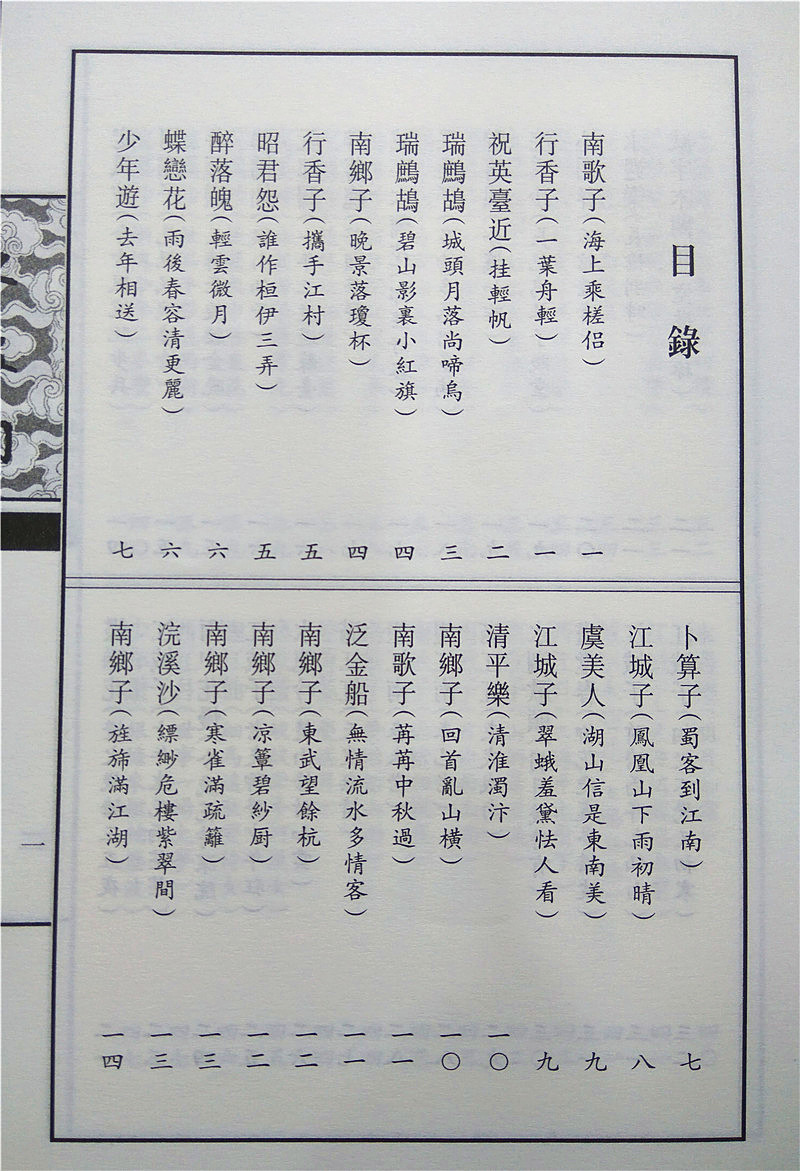 目錄
南歌子（海上乘槎侶） 一
行香子（一葉舟輕） 一
祝英臺近（挂輕帆） 二
瑞鷓鴣（城頭月落尚啼烏） 三
瑞鷓鴣（碧山影裏小紅旗） 四
南鄉子（晚景落瓊杯） 四
行香子（攜手江村） 五
昭君怨（誰作桓伊三弄） 五
醉落魄（輕雲微月） 六
蝶戀花（雨後春容清更麗） 六
少年遊（去年相送） 七
卜算子（蜀客到江南） 七
江城子（鳳凰山下雨初晴） 八
虞美人（湖山信是東南美） 九
江城子（翠蛾羞黛怯人看） 九
清平樂（清淮濁汴） 一〇
南鄉子（回首亂山橫） 一〇
南歌子（苒苒中秋過） 一一
泛金船（無情流水多情客） 一一
南鄉子（東武望餘杭） 一二
南鄉子（凉簟碧紗厨） 一二
南鄉子（寒雀滿疏籬） 一三
浣溪沙（縹緲危樓紫翠間） 一三
南鄉子（旌旆滿江湖） 一四
一